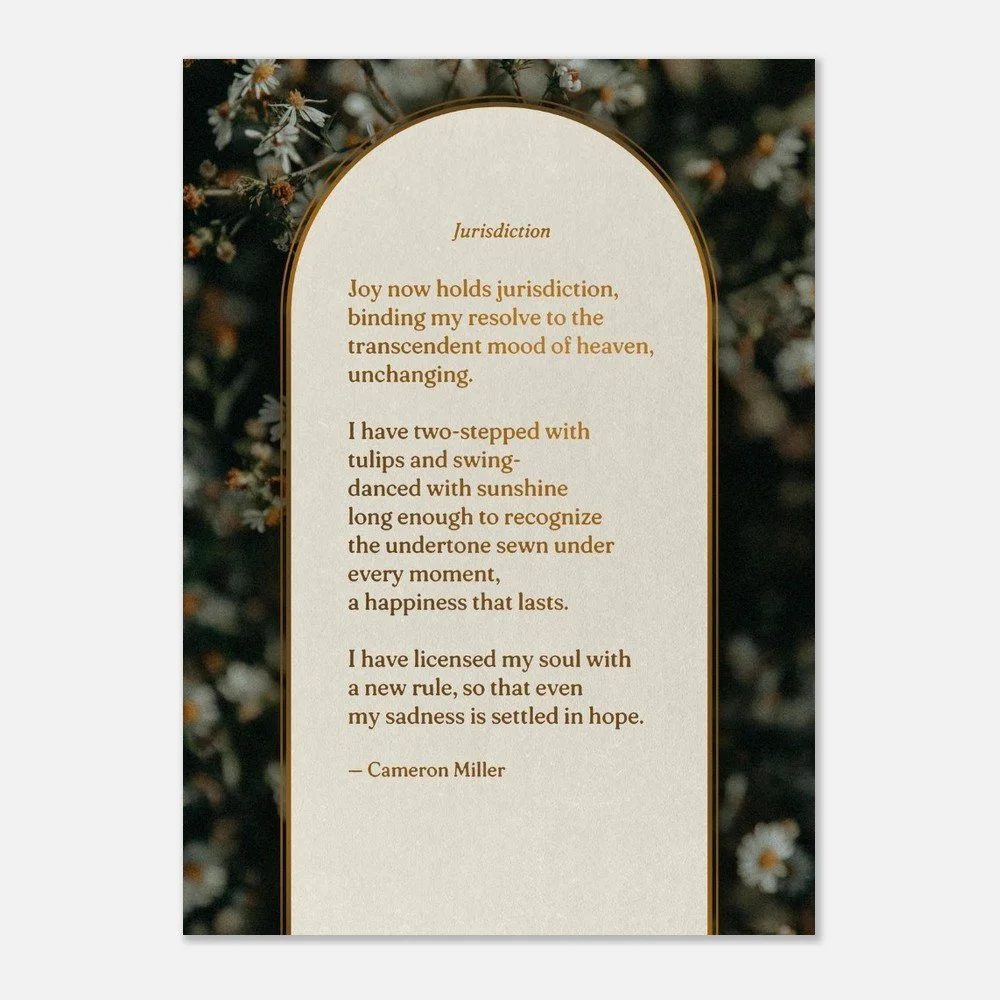 Jurisdiction
Joy now holds jurisdiction,
binding my resolve to the
transcendent mood of heaven,
unchanging.
I have two-stepped with
tulips and swing-
danced with sunshine
long enough to recognize
the undertone sewn under
every moment,
a happiness that lasts.
I have licensed my soul with
a new rule, so that even
my sadness is settled in hope.
— Cameron Miller